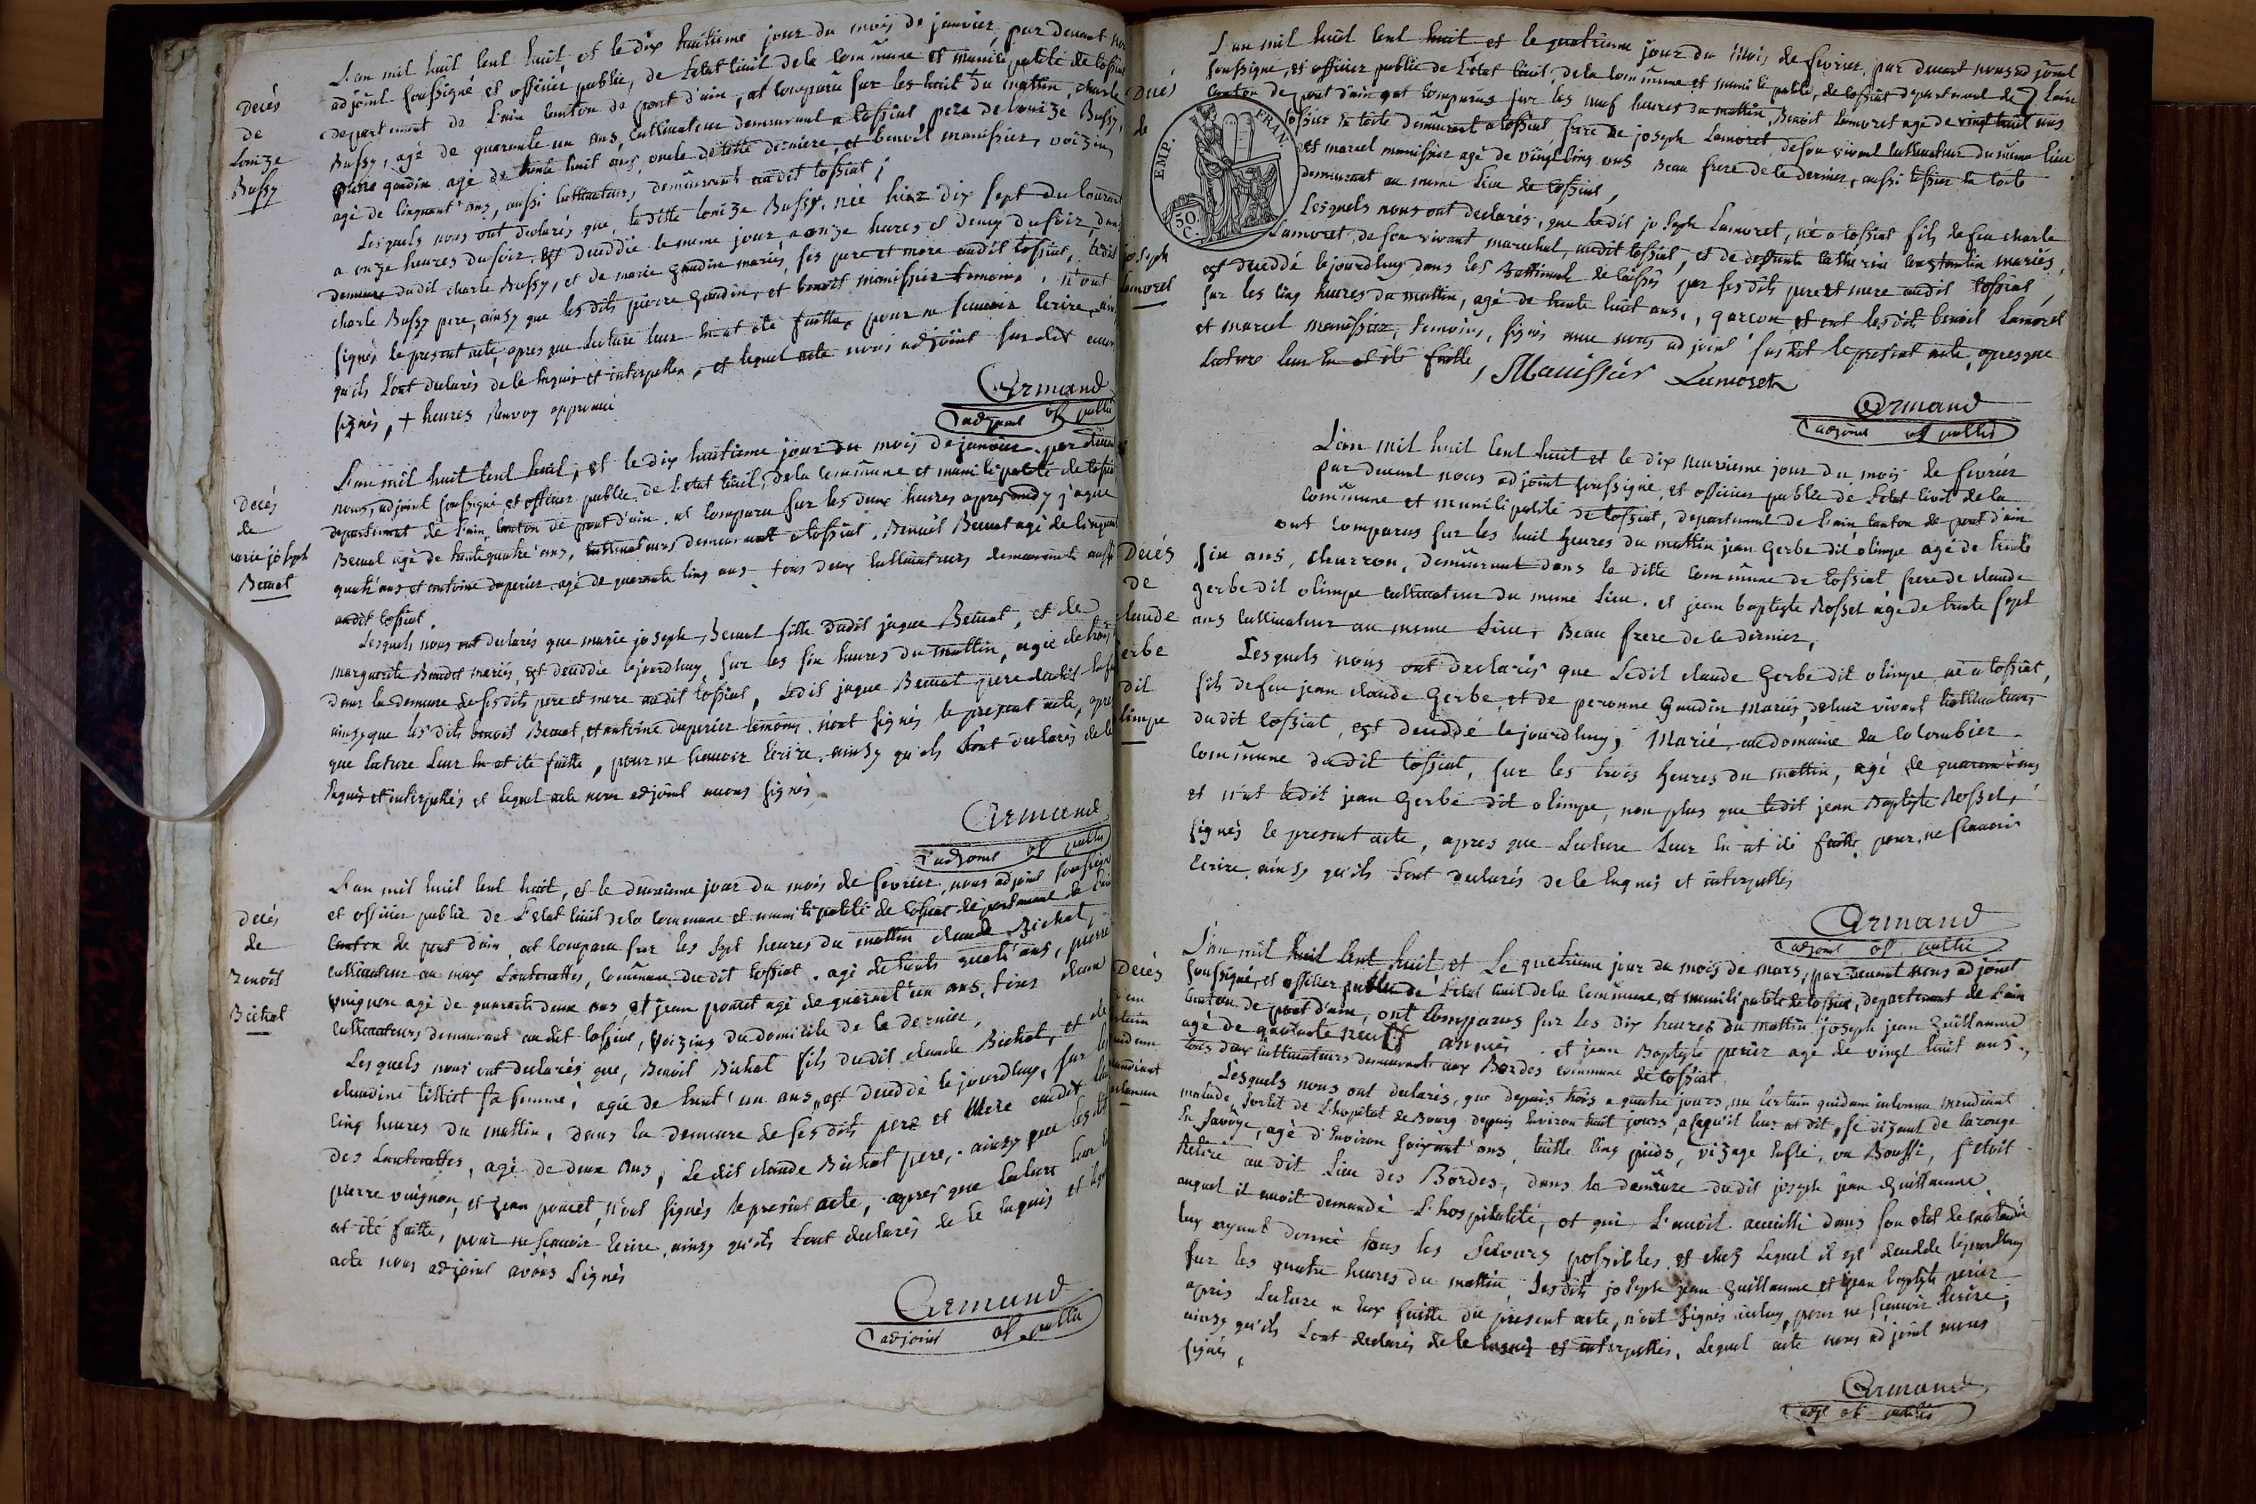 Décès
de
Louize
Bussy
L'an mil huit cent huit, et le dix huitieme jour du mois de janvier, par devant
adjoint soussigné et officier public, de l'etat civil de la commune et municipalité de Cossiat
departement de l'ain canton de pont d'ain, at comparu sur les huit du mattin, charle
Bussy, agé de quarente un ans, cultivateur demeurant a Cossiat pere de Louize Bussy,
pierre gaudin agé de trente huit ans, oncle de cette derniere, et benoit manissier, voizin
agé de cinquant'ans, aussi cultivateurs, demeurant audit Cossiat ;
Lesquels nous ont declarés que, la ditte Louize Bussy, née hier dix sept du courant
a onze heures du soir, est deceddée le meme jour, a onze heures et demy du soir, dans
demeure dudit charle Bussy, et de marie gaudin mariés, ses pere et mere audit Cossiat, ledit
charle Bussy pere, ainsy que les dits pierre gaudin, et benoit manissier temoins, n'ont
signés le present acte, apres que lecture leur en at été faitte, pour ne scavoir ecrire,
qu'ils l'ont declarés de le enquis et interpellés, et lequel acte nous adjoint susdit avons
signés, + heures renvoy approuvé
Armand
adjoint of public
Decés
de
marie joseph
Beuuat
L'an mil huit cent huit, et le dix huitieme jour du mois de janvier, par devant
nous, adjoint soussigné et officier public de l'etat civil, de la commune et municipalité de Cossiat
departement de l'ain, canton de pont d'ain, at comparu sur les deux heures apres midy jaque
Beuuat agé de trente quatre ans, cultivateurs demeurant a Cossiat, Benoit Beuuat agé de cinquante
quatr'ans et antoine duperier agé de quarante cinq ans tous deux cultivateurs demeurants aussi
audit Cossiat
Lesquels nous ont declarés que marie joseph Beuuat fille dudit jaque Beuuat, et de
marguerite Baudet mariés, est deceddée lejourdhuy, sur les six heures du mattin, agée de trois
dans la demeure de ses dits pere et mere audit Cossiat, Ledit jaque Beuuat pere
ainsy que les dits benoit Beuuat, et antoine duperier temoins, n'ont signés le present acte, apres
que lecture leur en at été faitte, pour ne scavoir ecrire, ainsy qu'ils l'ont declarés de le
enquis et interpellés et lequel acte nous adjoint avons signés
Armand
adjoint of public
Decés
de
Benoit
Bichat
L'an mil huit cent huit, et le deuxieme jour du mois de fevrier, nous adjoint soussigné
et officier public de l'etat civil de la commune et municipalité de Cossiat departement de l'ain
canton de pont d'ain, at comparu sur les sept heures du mattin claude Bichat,
cultivateur au commune du dit Cossiat, agé de trente quatr'ans, pierre
vuignon agé de quarante deux ans, et jean poncet agé de quarant'un ans, tous deux
cultivateurs demeurant audit Cossiat, voizins du domicile de le dernier,
Lesquels nous ont declarés que, Benoit Bichat fils dudit claude Bichat, et de
claudine tilliet sa femme, agée de trent'un ans, est deceddé lejourdhuy, sur les
cinq heures du mattin, dans la demeure de ses dits pere et Mere audit
des agé de deux ans, Le dit claude Bichat pere, ainsy que les dits
pierre vuignon, et jean poncet, n'ont signés le present acte, apres que lecture leur
at été faitte, pour ne scavoir ecrire, ainsy qu'ils l'ont declarés de le enquis et
acte nous adjoint avons signés
Armand
adjoint of public
Decés
de
joseph
Lamoret
EMP. FRAN.
50 C.
L'an mil huit cent huit et le quatrieme jour du Mois de fevrier, par devant nous adjoint
soussigné, et officier public de l'etat civil, de la commune et municipalité, de Cossiat departement de l'ain
canton de pont d'ain ont comparus sur les neuf heures du mattin, Benoit Lamoret agé de vingt huit ans
tissier en toile demeurant a Cossiat frere de joseph Lamoret, de son vivant cultivateur du meme lieu
et marcel manissier agé de vingt cinq ans Beau frere de le dernier, aussi tissier en toile
demeurant au meme Lieu de Cossiat,
Lesquels nous ont declarés, que ledit joseph Lamoret, né a Cossiat fils de feu charle
Lamoret, de son vivant marechal, audit Cossiat, et de deffunte catherine constantin mariés,
est deceddé lejourdhuy dans les Battiment de laissés par ses dits pere et mere audit Cossiat,
sur les cinq heures du mattin, agé de trente huit ans, garcon et ont les dits benoit Lamoret
et marcel manissier, temoins, signés avec nous adjoint susdit le present acte, apres que
lecture leur en at été faitte, Manissier Lamoret
Armand
adjoint of public
Decés
de
claude
gerbe
dit
olimpe
L'an mil huit cent huit et le dix neuvieme jour du mois de fevrier
par devant nous adjoint soussigné, et officier public de l'etat civil de la
commune et municipalité de Cossiat, departement de l'ain canton de pont d'ain
ont comparus sur les huit heures du mattin jean Gerbe dit olimpe agé de trente
six ans, charron, demeurant dans la ditte commune de Cossiat frere de claude
gerbe dit olimpe cultivateur du meme Lieu, et jean baptiste Rosset agé de trente sept
ans cultivateur au meme Lieu, Beau frere de le dernier,
Lesquels nous ont declarés que Ledit claude Gerbe dit olimpe né a Cossiat,
fils de feu jean claude Gerbe, et de peronne Gaudin mariés, de leur vivant cultivateurs
dudit Cossiat, est deceddé lejourdhuy, Marié, au domaine du Colombier
commune dudit Cossiat, sur les trois heures du mattin, agé de quarant'ans
et n'at ledit jean Gerbe dit olimpe, non plus que ledit jean Baptiste Rosset,
signés le present acte, apres que Lecture leur en at été faitte, pour ne scavoir
ecrire, ainsy qu'ils l'ont declarés de le Enquis et interpellés
Armand
adjoint of public
Decés
d'un
certain
quidam
mendiant
inconnu
L'an mil huit cent huit et Le quatrieme jour du mois de mars, par devant nous adjoint
soussigné, et officier public de l'etat civil de la commune, et municipalité de Cossiat, departement de l'ain
canton de pont d'ain, ont comparus sur les dix heures du mattin joseph jean Guillaume
agé de quarante neuf années, et jean Baptiste perier agé de vingt huit ans,
tous deux cultivateurs demeurants aux Bordes commune de Cossiat
Lesquels nous ont declarés, que depuis trois a quatre jours, un certain quidam inconnu mendiant
malade sortit de L'hopital de Bourg depuis environ huit jours, a sequ'il leur at dit, se dizant de
En Savoye, agé d'Environ soixant'ans, taille cinq pieds, vizage Enflé, ou Bouffi, s'etoit
Retiré au dit Lieu des Bordes, dans la demeure dudit joseph jean Guillaume
auquel il avoit demandé L'hospitalité, et qui L'avoit accuilli dans son etat de maladie
luy ayant donné tous les secours possibles, et chez Lequel il est deceddé lejourdhuy
sur les quatre heures du mattin, Lesdits joseph jean Guillaume et jean baptiste perier
apres Lecture a Eux faitte du present acte, n'ont signés iceluy, pour ne scavoir Ecrire,
ainsy qu'ils L'ont declarés de le enquis et interpellés, Lequel acte nous adjoint avons
signés,
Armand
adjt of public